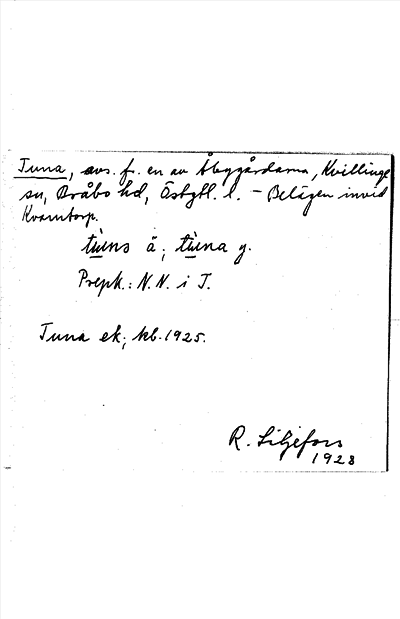 Tuna, avs. fr. en av Åbygårdarna, Kvillinge
sn, Bråbo hd, Östgtl. l. – Belägen invid
Kvarntorp.
tùns ä; tùna y.
Prepk.: N.N. i T.
Tuna ek; kb. 1925.
R. Liljefors
1928